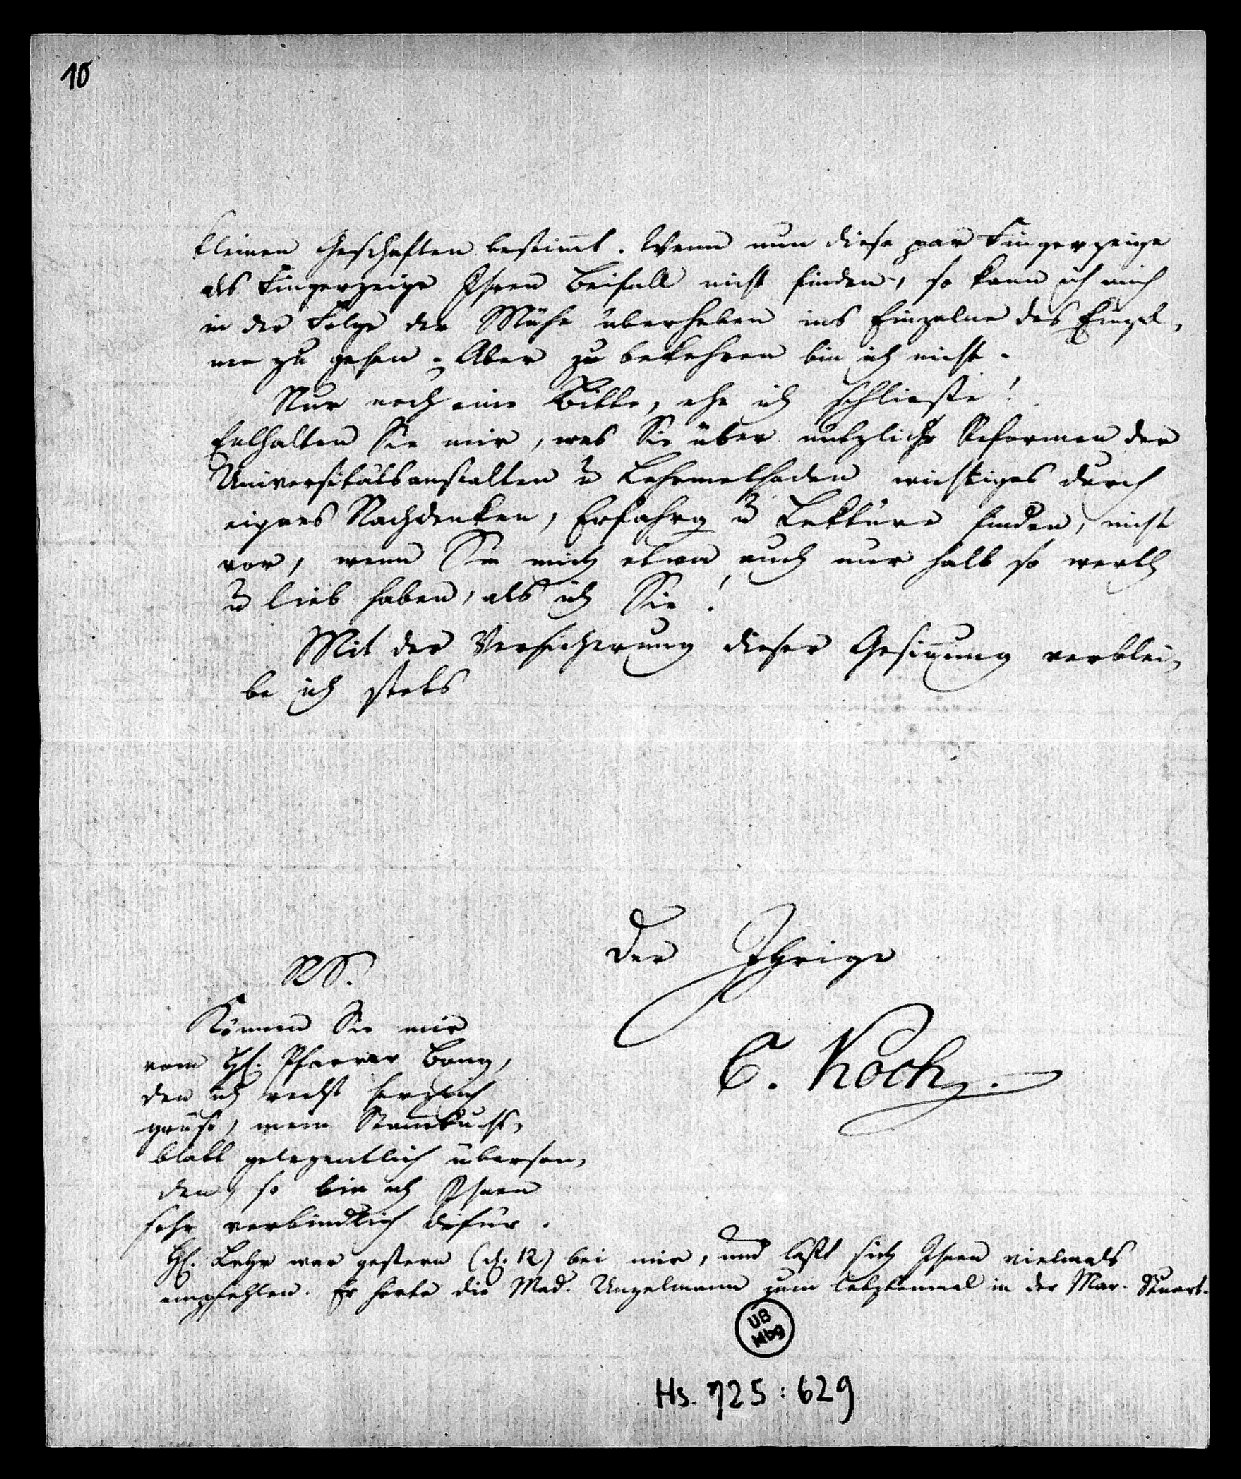 10
kleinen Geschäften bestimmt. Wenn nun diese paar Fingerzeige
als Fingerzeige Ihren Beifall nicht finden, so kann ich mich
in der Folge der Mühe überheben ins Einzelne des Einzel-
nen zu gehen. Aber zu bekehren bin ich nicht.
Nur noch eine Bitte, ehe ich schließe!
Enthalten Sie mir, was Sie über nützliche Reformen der
Universitätsanstalten u Lehrmethoden wichtiges durch
eignes Nachdenken, Erfahrg u Lektüre finden, nicht
vor, wenn Sie mich etwa auch nur halb so werth
u lieb haben, als ich Sie!
Mit der Versicherung dieser Gesinnung verblei-
be ich stets
Der Ihrige
C. Koch.
NS.
Können Sie mir
vom H. Pfarrer Bang,
den ich recht herzlich
grüße, mein Stammbuchs-
blatt gelegentlich übersen-
den, so bin ich Ihnen
sehr verbindlich dafür.
H. Lehr war gestern (d. 12) bei mir, und läßt sich Ihnen vielmals
empfehlen. Er hörte die Mad. Unzelmann zum letztenmal in der Mar. Stuart.
UB
Mbg
Hs. 725:629